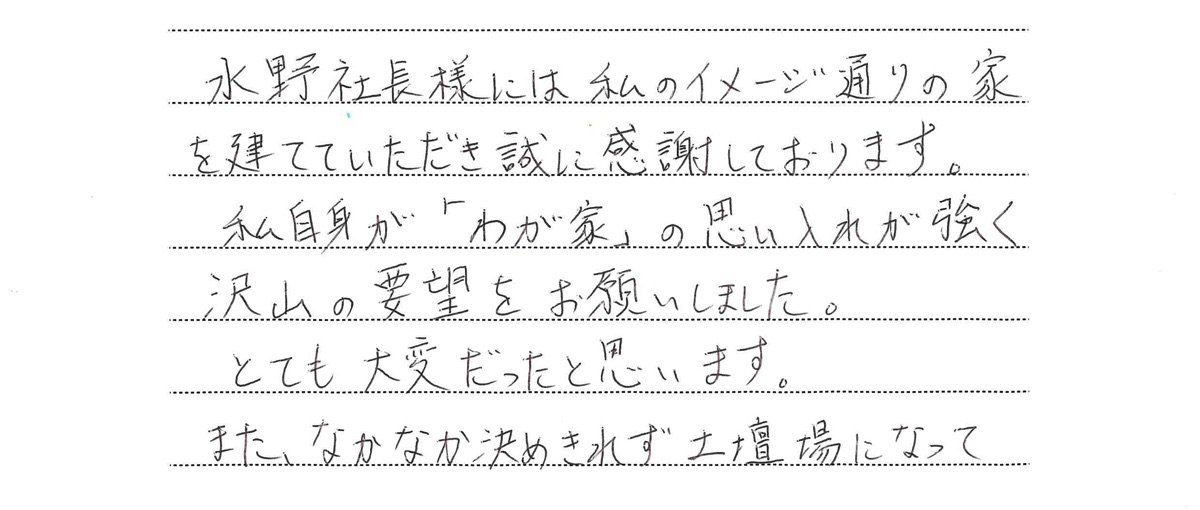 水野社長様には私のイメージ通りの家
を建てていただき誠に感謝しております。
私自身が「わが家」の思い入れが強く
沢山の要望をお願いしました。
とても大変だったと思います。
また、なかなか決めきれず土壇場になって